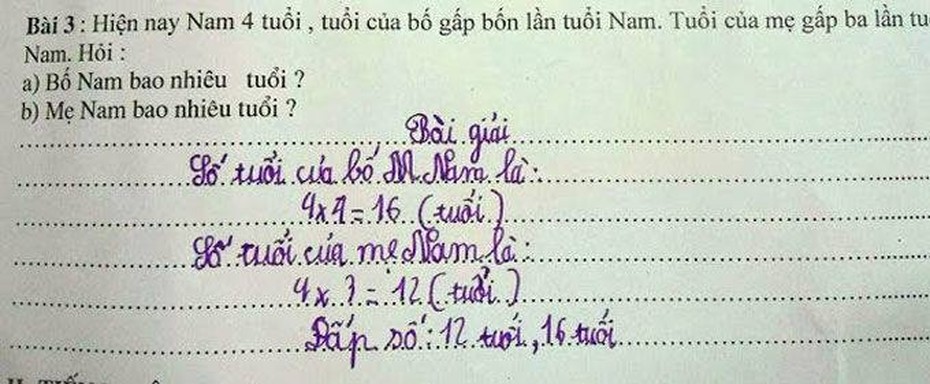 Bài 3 : Hiện nay Nam 4 tuổi , tuổi của bố gấp bốn lần tuổi Nam. Tuổi của mẹ gấp ba lần tu
Nam. Hỏi :
a) Bố Nam bao nhiêu tuổi ?
b) Mẹ Nam bao nhiêu tuổi ?
Bài giải
Số tuổi của bố Nam là :
4 x 4 = 16 (tuổi)
Số tuổi của mẹ Nam là :
4 x 3 = 12 (tuổi)
Đấp số : 12 tuổi, 16 tuổi